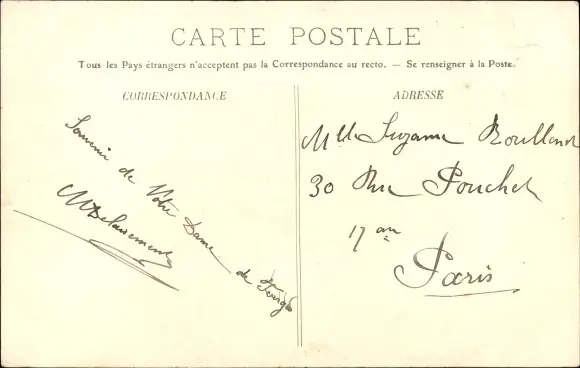 CARTE POSTALE
Tous les Pays étrangers n'acceptent pas la Correspondance au recto. — Se renseigner à la Poste.
CORRESPONDANCE
Souvenir de Notre Dame de
ADRESSE
Mlle Suzanne
30 Rue Pouchet
17 arr
Paris